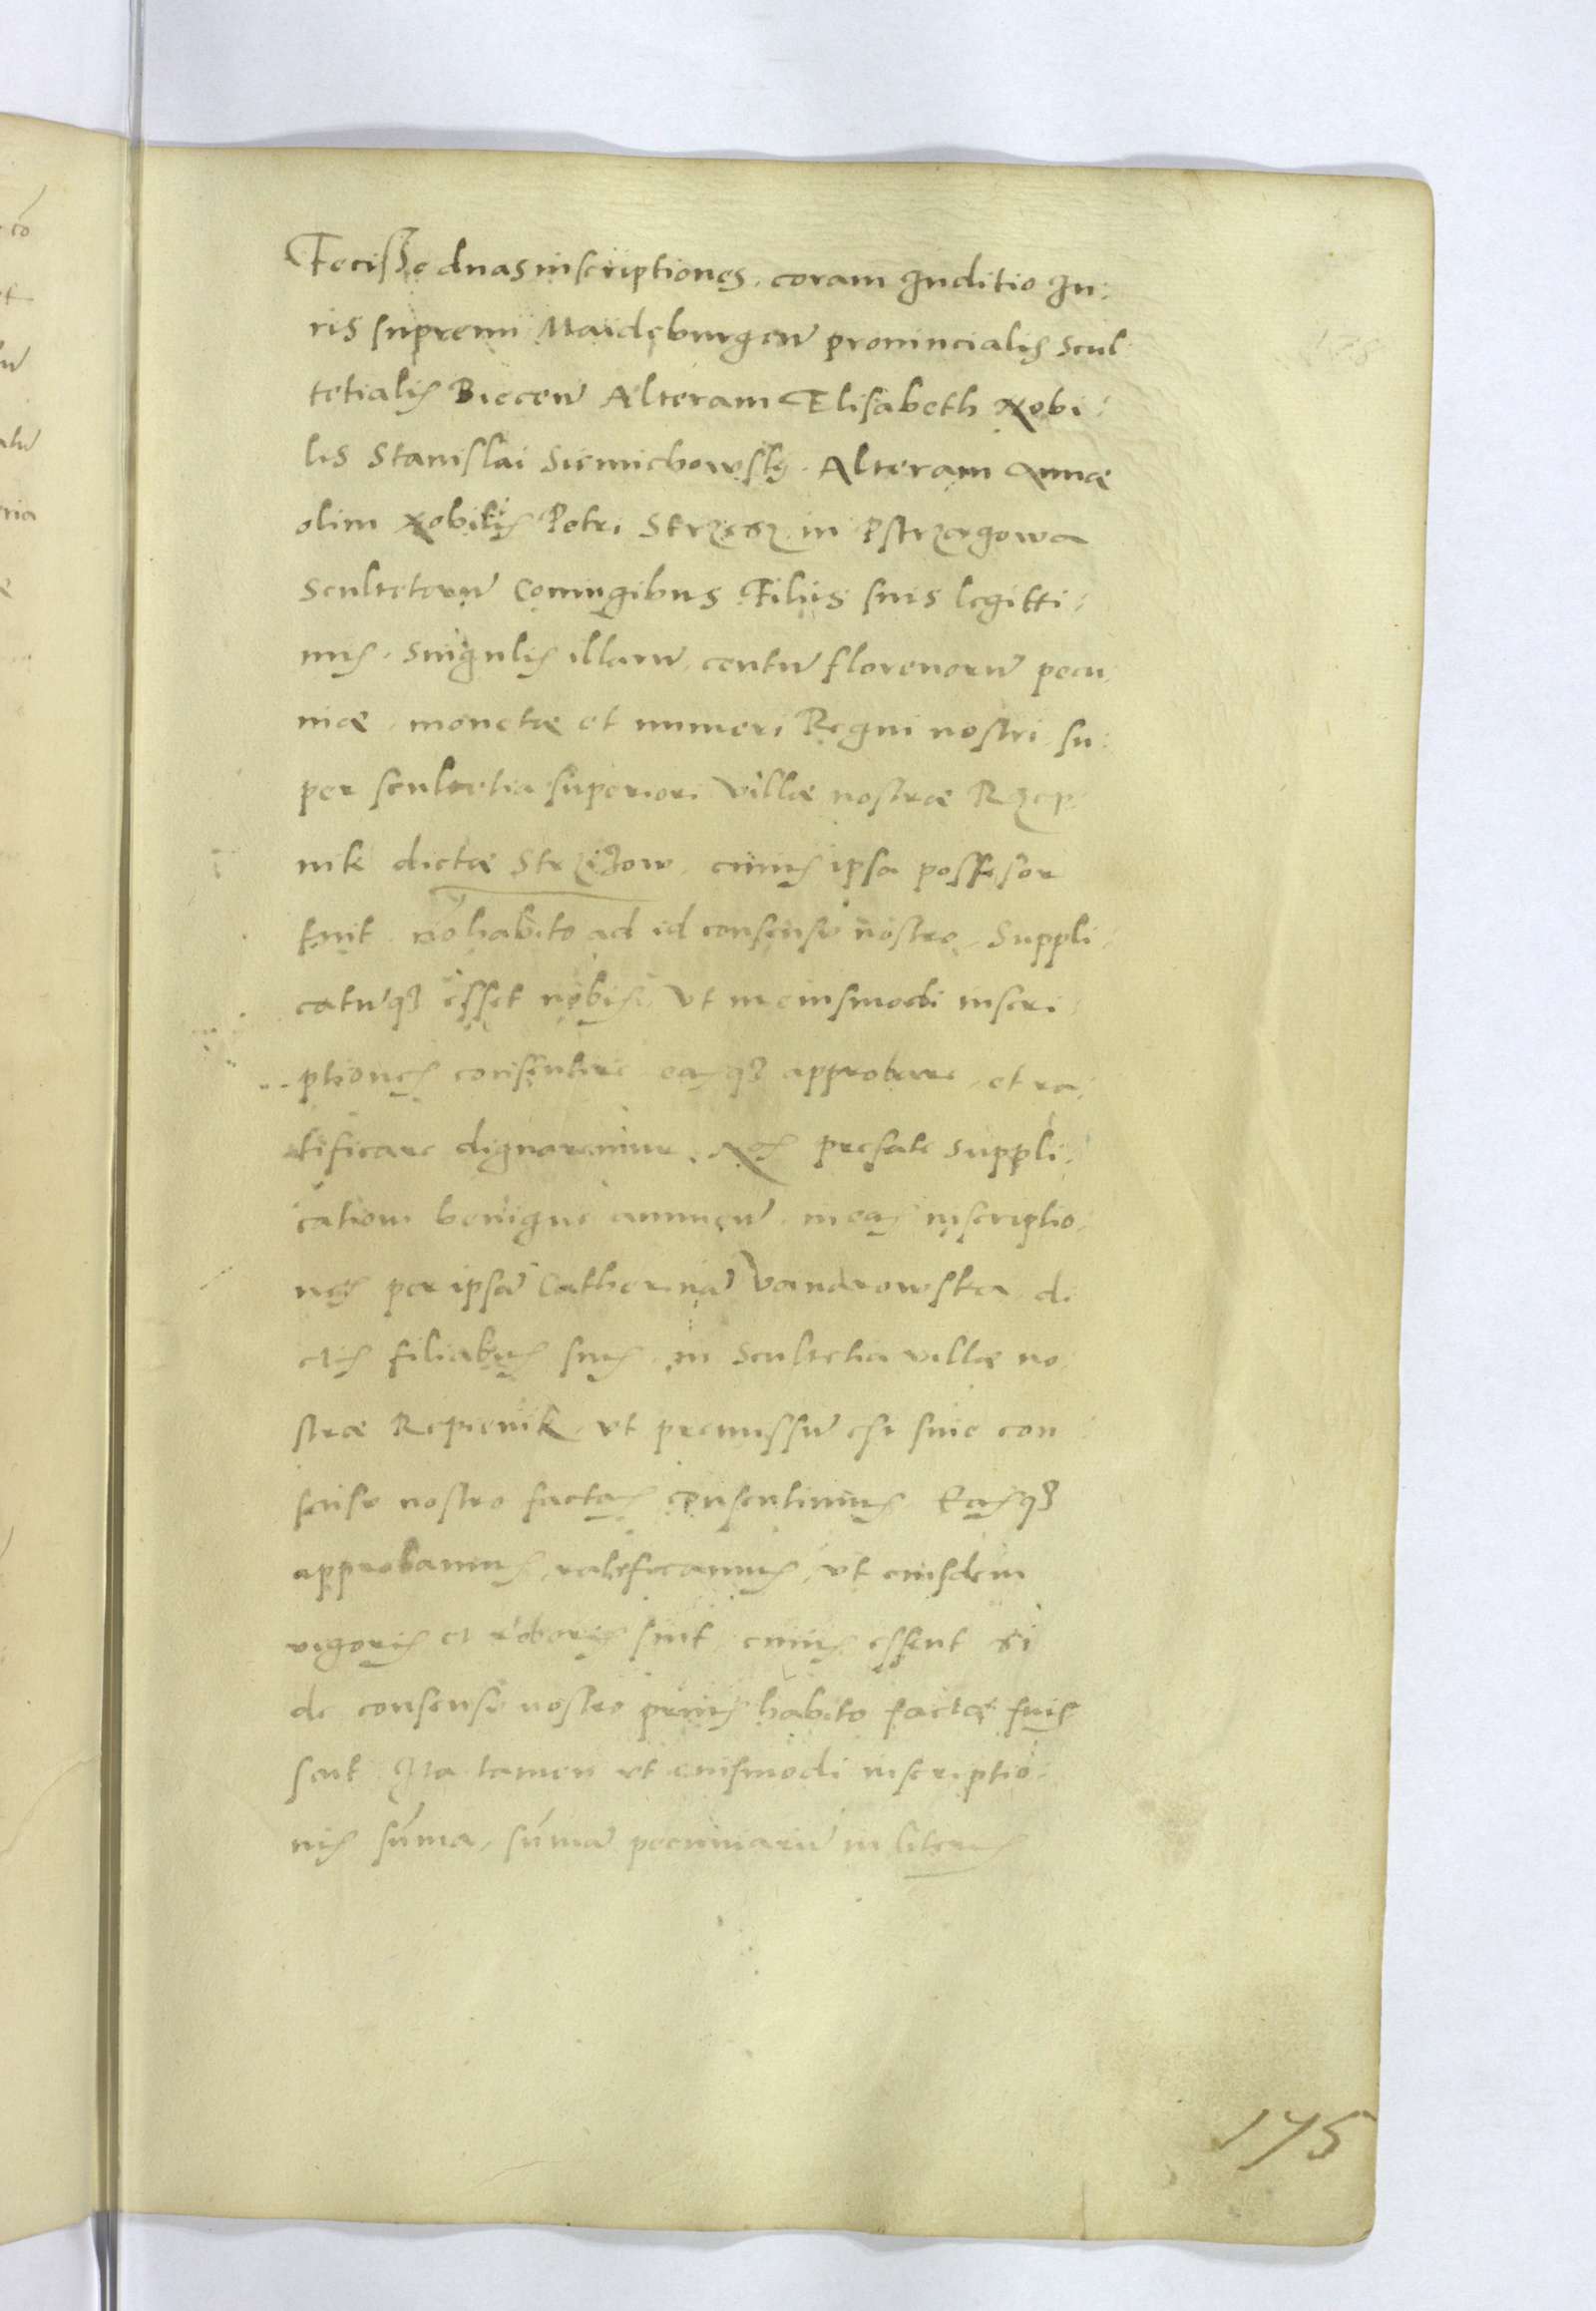 Fecisse duas inscriptiones, coram Juditio Ju:
ris supremi Maideburgen̄ provincialis Scul
tetialis Biecen̄ Alteram Elisabeth Nobi:
lis Stanislai Siemichowsky. Alteram Annæ
olim Nobilis Petri Strzesz in Pstrzagowa
Scultetorū Coniugibus Filiis suis legitti:
mis. Singulis illarū, centū florenorū pecu
niæ, monetæ et numeri Regni nostri su:
per scultetia superiori villæ nostræ Rzep
nik dictæ Strzizow, cuius ipsa possesor
fuit nō habito ad id consensu nostro, Suppli:
catūq3 esset nobis, Vt in eiusmodi inscri
ptiones consentire easq3 approbare, et ra:
tificare dignoremur. Nos prefate suppli:
cationi benigne annuen̄ in eas inscriptio:
nes per ipsā Catherinā Vandrowska di
ctis filiabus suis in Scultetia villæ no
stræ Repienik, vt premissū est sine con
sensu nostro factas consentimus Easq3
approbamus, ratificamus, vt eiusdem
vigoris et roboris sint cuius essent si
de consensu nostro prius habito factæ fuis
sent Ita tamen vt eiusmodi inscriptio:
nis sūma, sūmā pecuniariū in literis
175